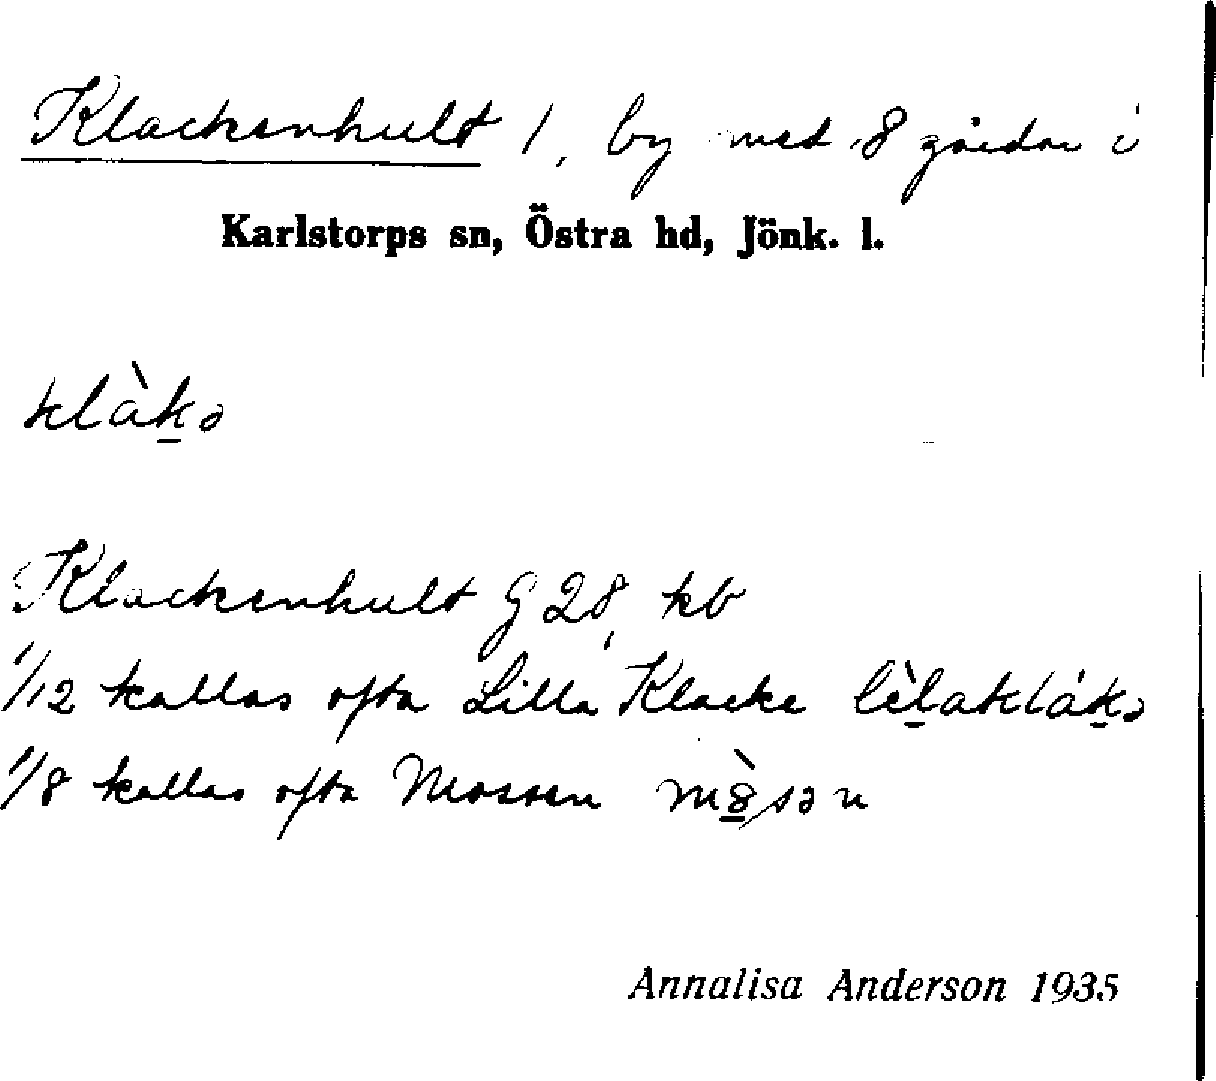 Klackenhult 1, by med 8 gårdar i
Karlstorps sn, Östra hd, Jönk. l.
klàkə
Klackenhult G 28, kb
1/12 kallas ofta Lilla Klacke lìlaklákə
1/8 kallas ofta Mossen
Annalisa Anderson 1935